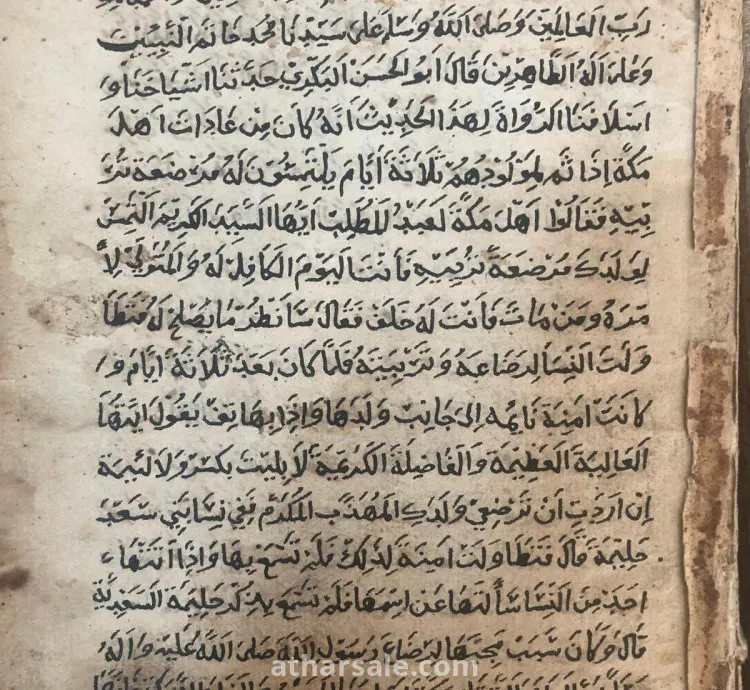 رَبِّ العَالَمِينَ وَصَلَى اللَّهُ وَسَلَمَ عَلَى سَيِّدِنَا مُحَمَّد خَاتَمِ النَّبِيِّينَ
وَعَلَى آلِهِ الطَّاهِرِينَ قَالَ ابُو الحَسَن البَكْرِي حَدَّثَنَا اشْيَاخَنَا وَ
اسْلَافَنَا الرُّوَاة لِهَذَ الحَدِيثِ انَّهُ كَانَ مِنْ عَادَاتِ اهْلَ
مَكَّةَ إِذَا تَم لِمَوْلُودِهُمْ ثَلَاثَةَ أَيَّام يَلْتَمِسُونَ لَهُ مُرْضِعَةً تُرَ
بِّيهِ فَقَالُوا اهْلَ مَكَّةَ لَعَبْدُ المُطَّلِب ايُّهَا السَّيِدَ الكَرِيمَ الْتَمِسْ
لِوَلَدِكَ مُرْضِعَةً تُرَبِّيهِ فَأَنْتَ اليَوْمَ الكَافِلَ لَهُ وَالمُتَوَلِي لِأَ
مْرِهُ وَمَنْ مَاتَ فَأَنْتَ لَهُ خَلَفْ فَقَالَ سَأَنْظُرُ مَا يَصْلح لَهُ فَتَطَا
وَلَتَ النِّسَا لِرَضَاعِهِ وَتَرْبِيَتِهِ فَلَمَّا كَانَ بَعْدَ ثَلَاثَةِ ايَّام وَ
كَانَتْ امِنَة نَايِمَه الِى جَانِبْ وَلَدَهَا وَاذَا بِهَاتِفْ يَقُولَ ايَّتُهَا
العَالِيَةَ العَظِيمَةَ وَالفَاضِلَةَ الكَرِيمَةَ لَا بليت بكسر وَلَا لئيمة
إِنْ ارَدْتِ انْ تَرْضِعِي وَلَدِكِ المُهَذَّب المُكَرَّم فَفِي نِسَا بَنِي سَعَدْ
حَلِيمَةَ قَالَ فَتَطَاوَلَتْ امِنَةَ لِذَلِكْ فَلَمْ تَسْمَعْ بِهَا وَاذَا أَتَتْهَا
احَدْ مِنَ النِّسَا سَأَلَتهَا عَنْ اسْمِهَا فَلَمْ تَسْمَعْ بِذِكْرِ حَلِيمَةَ السَّعْدِيَّة
قَالَ وَكَانَ سَبَب مجيئها لِرَضَاع رَسُول اللَّهِ صَلَى اللَّهُ عَلَيْهِ وَالَهُ
atharsale.com